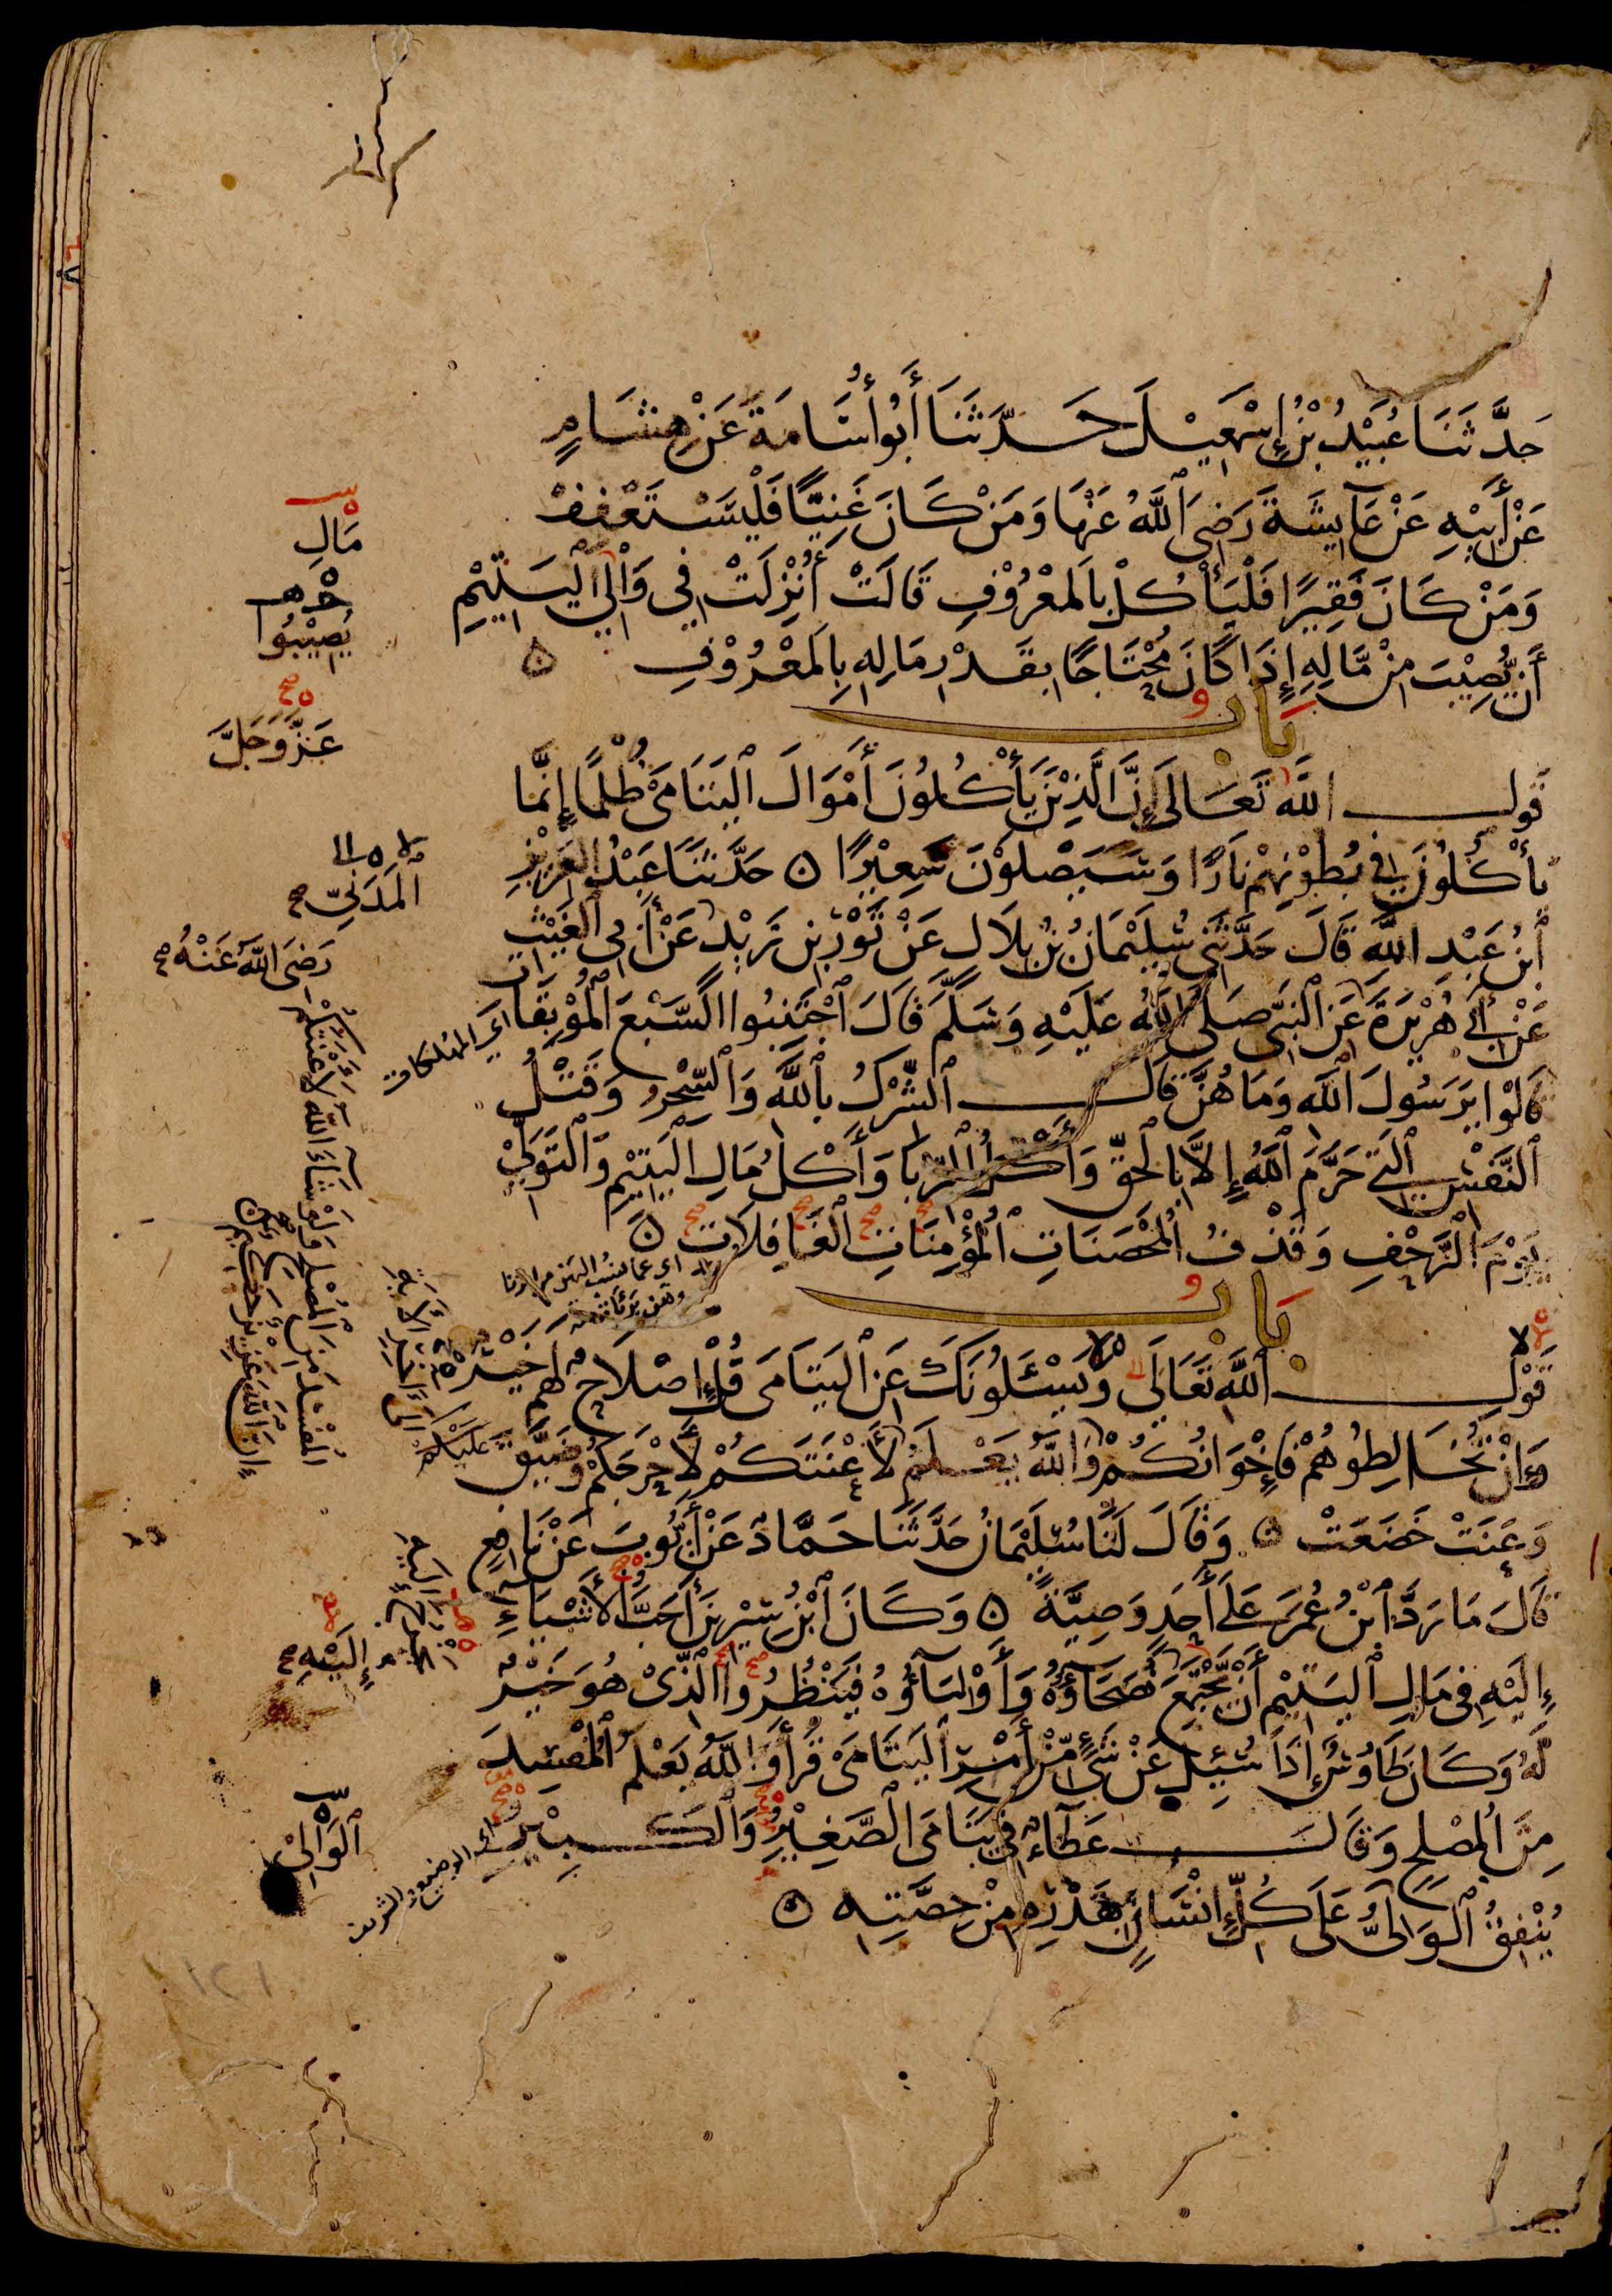 حَدَّثَنَا عُبَيْدُ بْنُ إِسْمٰعِيْلَ حَدَّثَنَا أَبُو أُسَامَةَ عَنْ هِشَامٍ
عَنْ أَبِيْهِ عَنْ عَآئِشَةَ رَضِيَ ٱللَّهُ عَنْهَا وَمَنْ كَانَ غَنِيًّا فَلْيَسْتَعْفِفْ
وَمَنْ كَانَ فَقِيْرًا فَلْيَأْكُلْ بِالْمَعْرُوْفِ قَالَتْ أُنْزِلَتْ فِي وَالِي الْيَتِيْمِ
أَنْ يُصِيْبَ مِنْ مَّالِهِ إِذَا كَانَ مُحْتَاجًا بِقَدْرِ مَالِهِ بِالْمَعْرُوْفِ ۞
بَابُ
قَوْلِ اللَّهِ تَعَالَى إِنَّ الَّذِيْنَ يَأْكُلُوْنَ أَمْوَالَ الْيَتَامَىٰ ظُلْمًا إِنَّمَا
يَأْكُلُوْنَ فِي بُطُوْنِهِمْ نَارًا وَسَيَصْلَوْنَ سَعِيْرًا ۞ حَدَّثَنَا عَبْدُ الْعَزِيْزِ
ٱبْنُ عَبْدِ اللَّهِ قَالَ حَدَّثَنِي سُلَيْمَانُ بْنُ بِلَالٍ عَنْ ثَوْرِ بْنِ زَيْدٍ عَنْ أَبِي ٱلْغَيْثِ
عَنْ أَبِي هُرَيْرَةَ عَنِ ٱلنَّبِيِّ صَلَّى اللَّهُ عَلَيْهِ وَسَلَّمَ قَالَ ٱجْتَنِبُوا السَّبْعَ الْمُوْبِقَاتِ
قَالُوْا يَرَسُولَ ٱللَّهِ وَمَا هُنَّ قَالَ ٱلشِّرْكُ بِٱللَّهِ وَالسِّحْرُ وَقَتْلُ
ٱلنَّفْسِ ٱلَّتِي حَرَّمَ ٱللَّهُ إِلَّا بِالْحَقِّ وَأَكْلُ الرِّبَا وَأَكْلُ مَالِ الْيَتِيْمِ وَالتَّوَلِّيْ
يَوْمَ ٱلزَّحْفِ وَقَذْفُ ٱلْمُحْصَنَاتِ ٱلْمُؤْمِنَاتِ ٱلْغَافِلَاتِ ۞
بَابُ
قَوْلِ ٱللَّهِ تَعَالَى وَيَسْئَلُوْنَكَ عَنِ ٱلْيَتَامَى قُلْ إِصْلَاحٌ لَهُمْ خَيْرٌ
وَإِنْ تُخَالِطُوْهُمْ فَإِخْوَانُكُمْ وَاللَّهُ يَعْلَمُ لَأَعْنَتَكُمْ لَأَحْرَجَكُمْ وَضَيَّقَ عَلَيْكُمْ
وَعَنَتْ خَضَعَتْ ۞ وَقَالَ لَنَا سُلَيْمَانُ حَدَّثَنَا حَمَّادٌ عَنْ أَيُّوْبَ عَنْ نَافِعٍ
قَالَ مَا رَدَّ ٱبْنُ عُمَرَ عَلَى أَحَدٍ وَصِيَّةً ۞ وَكَانَ ٱبْنُ سِيْرِيْنَ أَحَبُّ الْأَشْيَاءِ
إِلَيْهِ فِي مَالِ ٱلْيَتِيْمِ أَنْ يَّجْتَمِعَ نُصَحَاؤُهُ وَأَوْلِيَآؤُهُ فَيَنْظُرُوا الَّذِيْ هُوَ خَيْرٌ
لَهُ وَكَانَ طَاوُسٌ إِذَا سُئِلَ عَنْ شَيْءٍ مِّنْ أَمْرِ الْيَتَامَىٰ قَرَأَ وَاللَّهُ يَعْلَمُ الْمُفْسِدَ
مِنَ الْمُصْلِحِ وَقَالَ عَطَآءٌ فِي يَتَامَى الصَّغِيْرِ وَالْكَبِيْرِ
يُنْفِقُ ٱلْوَالِيُّ عَلَى كُلِّ إِنْسَانٍ بِقَدْرِهِ مِنْ حِصَّتِهِ ۞
مَالِ
يُصِيْبُوا
عَزَّ وَجَلَّ
الْمَدَنِيّ صح
رَضِيَ اللَّهُ عَنْهُ صح
اي المهلكات
الْمُفْسِدَ مِنَ الْمُصْلِحِ وَلَوْ شَآءَ اللَّهُ لَأَعْنَتَكُمْ
إِنَّ اللَّهَ عَزِيْزٌ حَكِيْمٌ
إِلَى آخِرِ الْآيَةِ
إِلَيْهِ صح
الْوَالِيْ
اي الوضيع والشريف